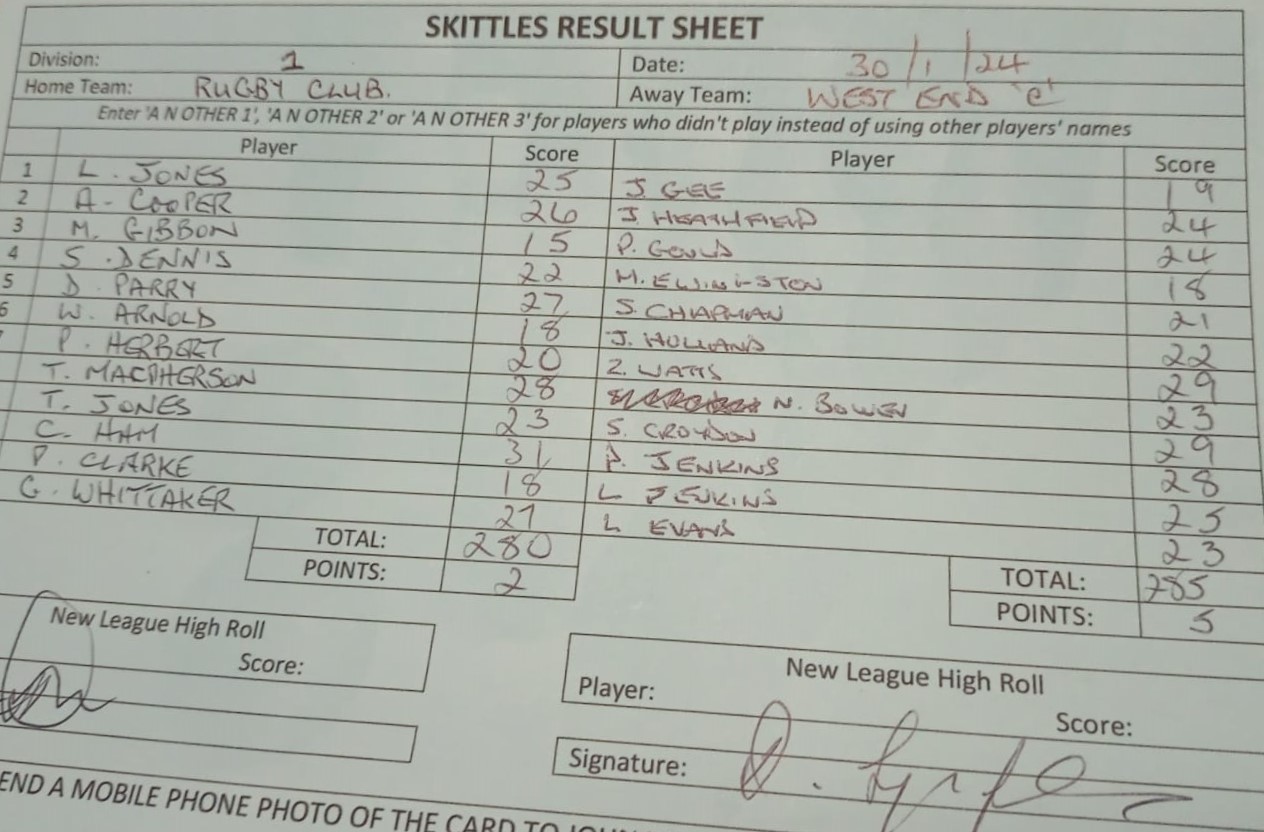 SKITTLES RESULT SHEET
Division: 1 Date: 30/1/24
Home Team: RUGBY CLUB. Away Team: WEST END 'C'
Enter 'A N OTHER 1', 'A N OTHER 2' or 'A N OTHER 3' for players who didn't play instead of using other players' names
Player Score Player Score
1 L. JONES 25 J. GEE 19
2 A. COOPER 26 J. HEATHFIELD 24
3 M. GIBBON 15 P. GOULD 24
4 S. DENNIS 22 M. 18
5 D. PARRY 27 S. CHAPMAN 21
6 W. ARNOLD 18 J. HOLLAND 22
P. HERBERT 20 Z. WATTS 29
T. MACPHERSON 28 N. BOWEN 23
T. JONES 23 S. CROYDON 29
C. HAM 31 P. JENKINS 28
P. CLARKE 18 L JENKINS 25
G. WHITTAKER 27 L EVANS 23
TOTAL: 280 TOTAL: 285
POINTS: 2 POINTS: 5
New League High Roll New League High Roll
Score: Player: Score:
Signature:
END A MOBILE PHONE PHOTO OF THE CARD TO